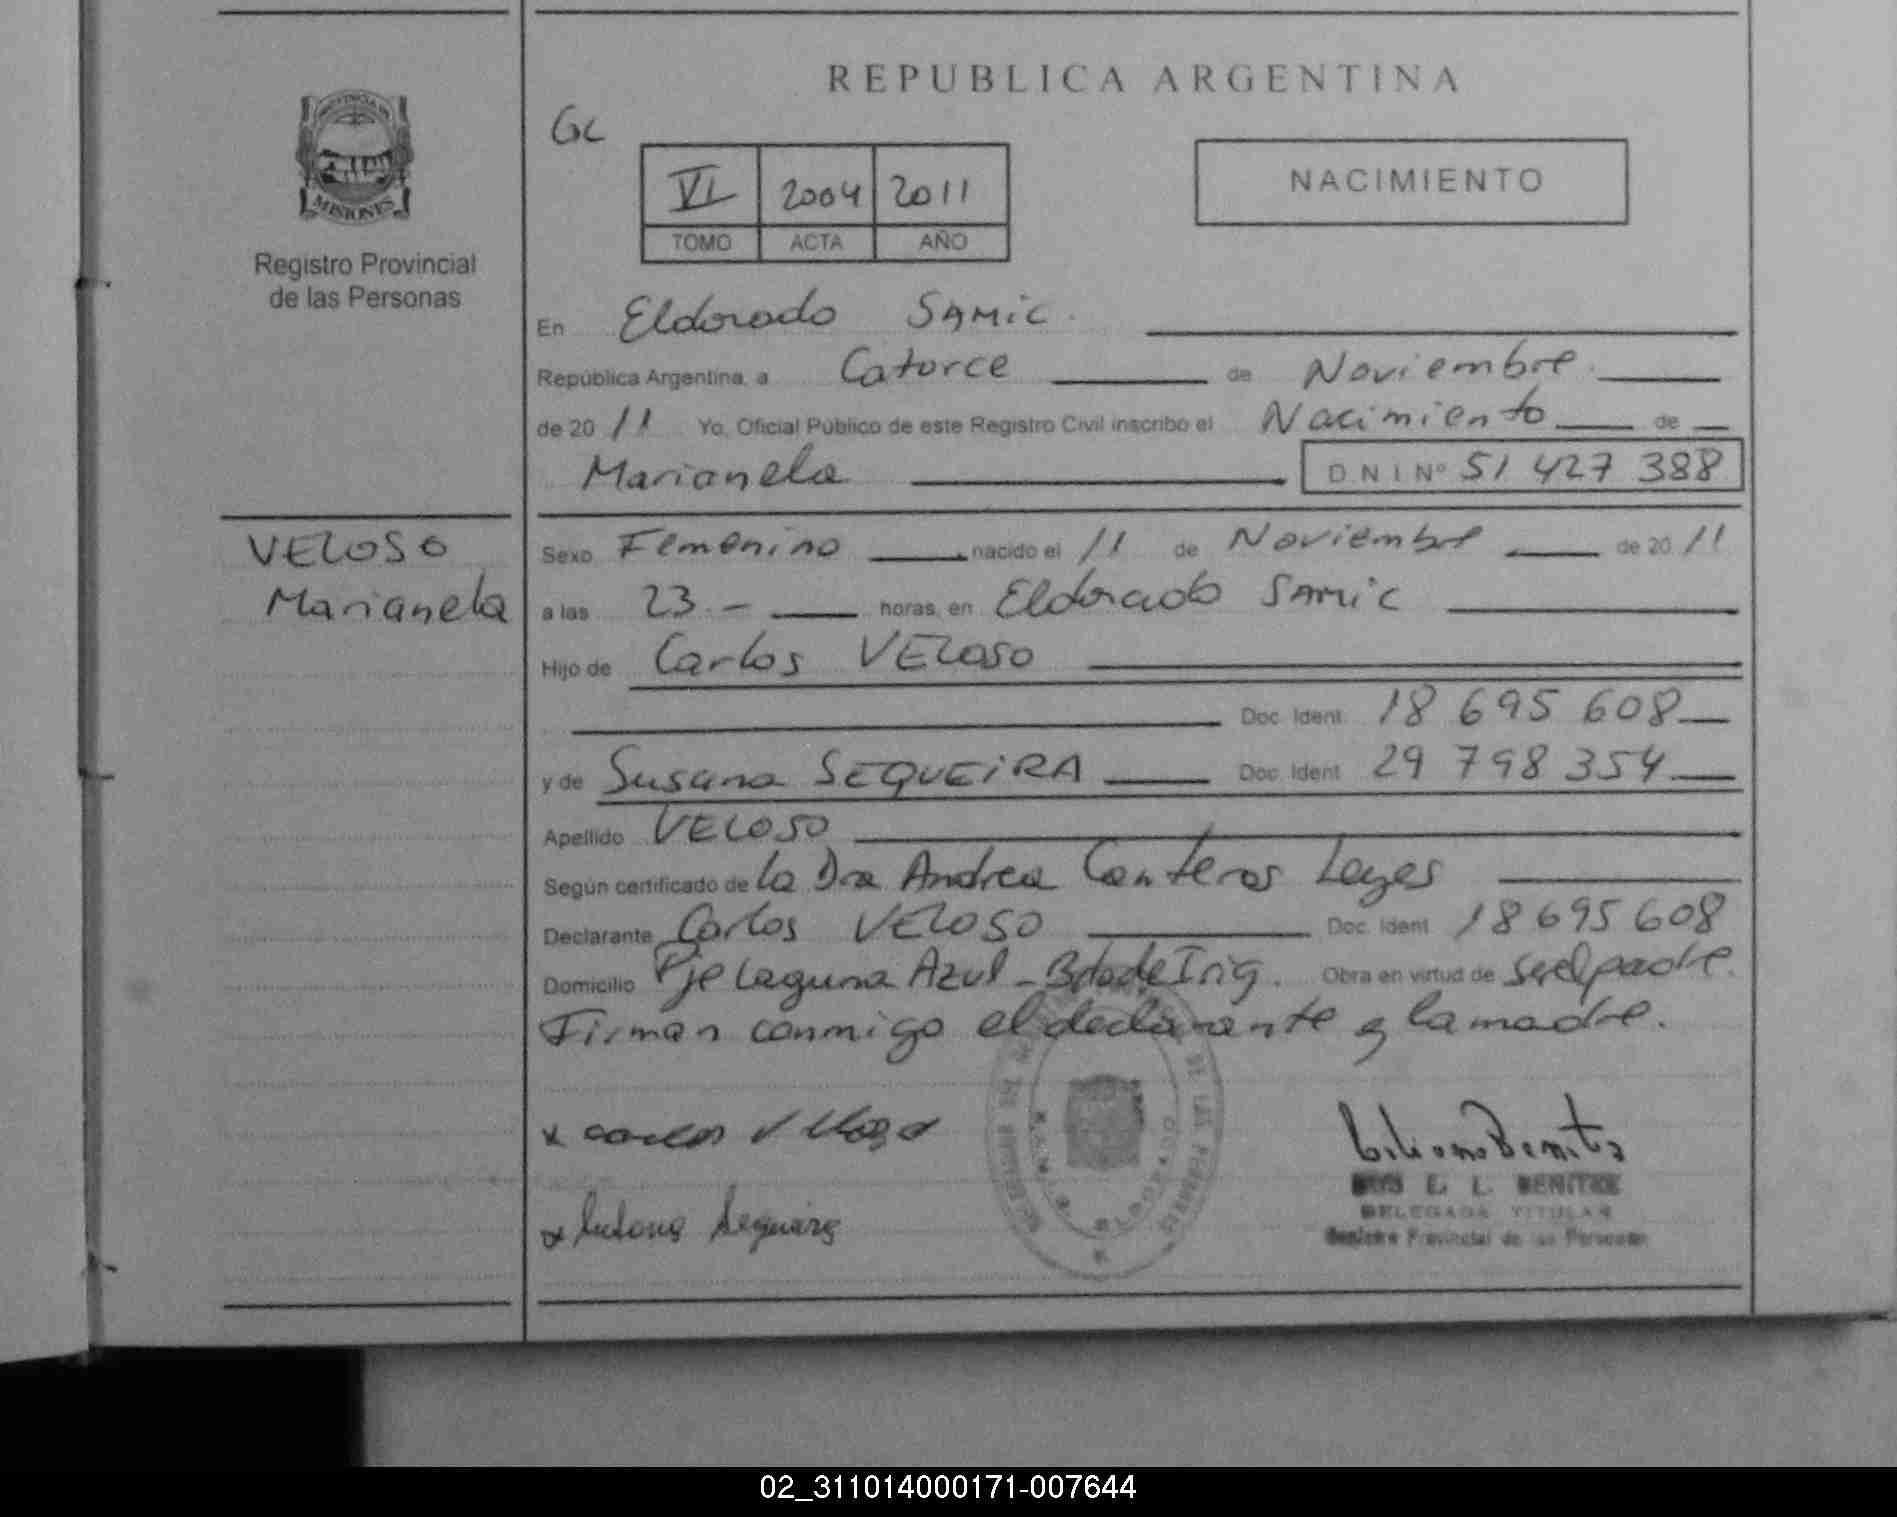 REPUBLICA ARGENTINA
PROVINCIA DE
MISIONES
Registro Provincial
de las Personas
GC
VI 2004 2011
TOMO ACTA AÑO
NACIMIENTO
En Eldorado SAMIC
República Argentina, a Catorce de Noviembre
de 20 11 Yo, Oficial Público de este Registro Civil inscribo el Nacimiento de
Marianela D N I Nº 51 427 388
VELOSO
Marianela
Sexo Femenino nacido el 11 de Noviembre de 20 11
a las 23 - horas, en Eldorado SAMIC
Hijo de Carlos VELOSO
Doc. Ident. 18 695 608
y de Susana SEQUEIRA Doc. Ident. 29 798 354
Apellido VELOSO
Según certificado de la Dra Andrea Canteros Leyes
Declarante Carlos VELOSO Doc. Ident. 18695608
Domicilio Pje Laguna Azul - Bdo de Irig. Obra en virtud de ser el padre.
Firman conmigo el declarante y la madre.
x Carlos Veloso
x Susana Sequeira
DE LAS PERSONAS
ELDORADO
Liliana Benitez
L. BENITEZ
DELEGADA TITULAR
Registro Provincial de las Personas
02_311014000171-007644